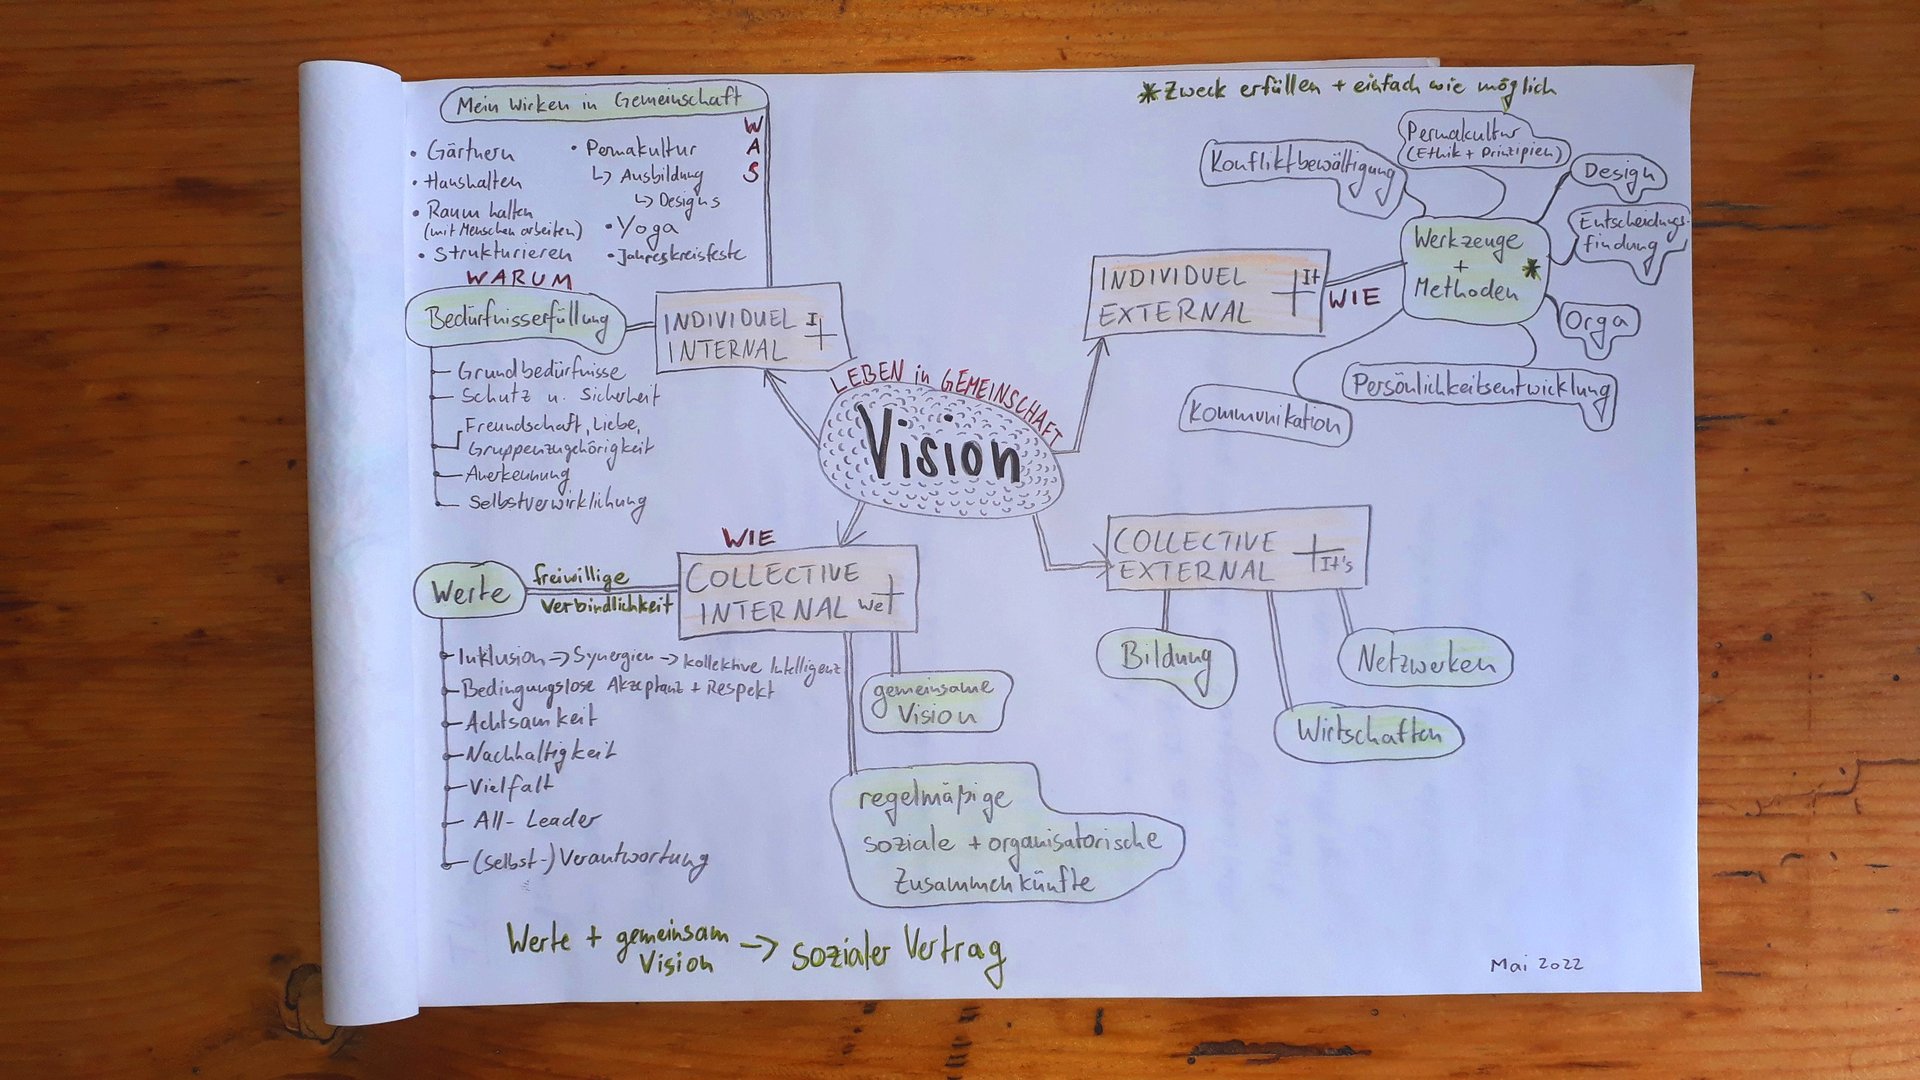 Mein Wirken in Gemeinschaft
WAS
• Gärtnern
• Haushalten
• Raum halten
(mit Menschen arbeiten)
• Strukturieren
• Permakultur
↳ Ausbildung
↳ Designs
• Yoga
• Jahreskreisfeste
WARUM
Bedürfnisserfüllung
Grundbedürfnisse
Schutz u. Sicherheit
Freundschaft, Liebe,
Gruppenzugehörigkeit
Anerkennung
Selbstverwirklichung
INDIVIDUEL I
INTERNAL
LEBEN in GEMEINSCHAFT
Vision
* Zweck erfüllen + einfach wie möglich
INDIVIDUEL It
EXTERNAL
WIE
Werkzeuge
+
Methoden *
Konfliktbewältigung
Permakultur
(Ethik + Prinzipien)
Design
Entscheidungs-
findung
Orga
Persönlichkeitsentwicklung
Kommunikation
WIE
COLLECTIVE
INTERNAL We
freiwillige
Verbindlichkeit
Werte
Inklusion -> Synergien -> kollektive Intelligenz
Bedingungslose Akzeptanz + Respekt
Achtsamkeit
Nachhaltigkeit
Vielfalt
All-Leader
(Selbst-) Verantwortung
gemeinsame
Vision
regelmäßige
soziale + organisatorische
Zusammenkünfte
COLLECTIVE
EXTERNAL It's
Bildung
Netzwerken
Wirtschaften
Werte + gemeinsam
Vision
-> sozialer Vertrag
Mai 2022